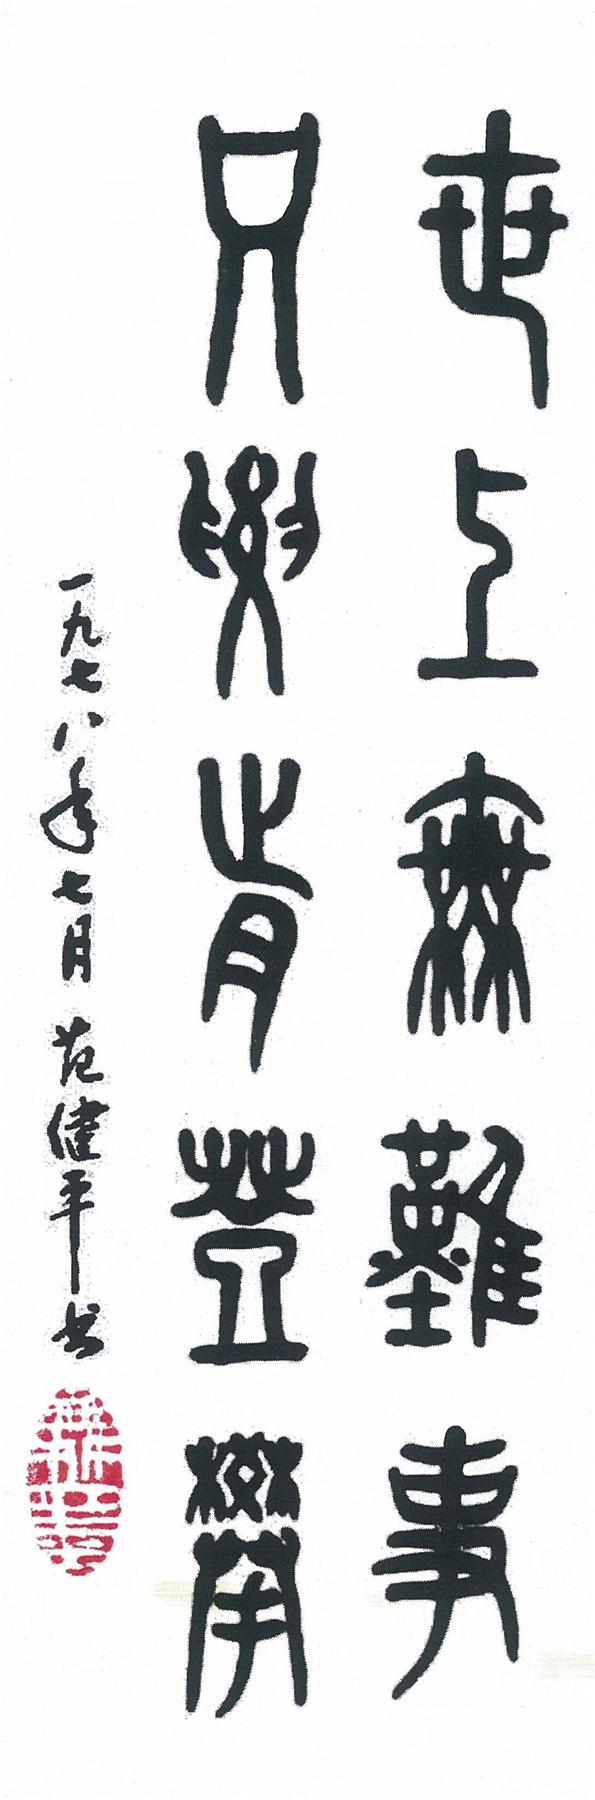 世上無難事
只要肯登攀
一九七八年七月 范健平书